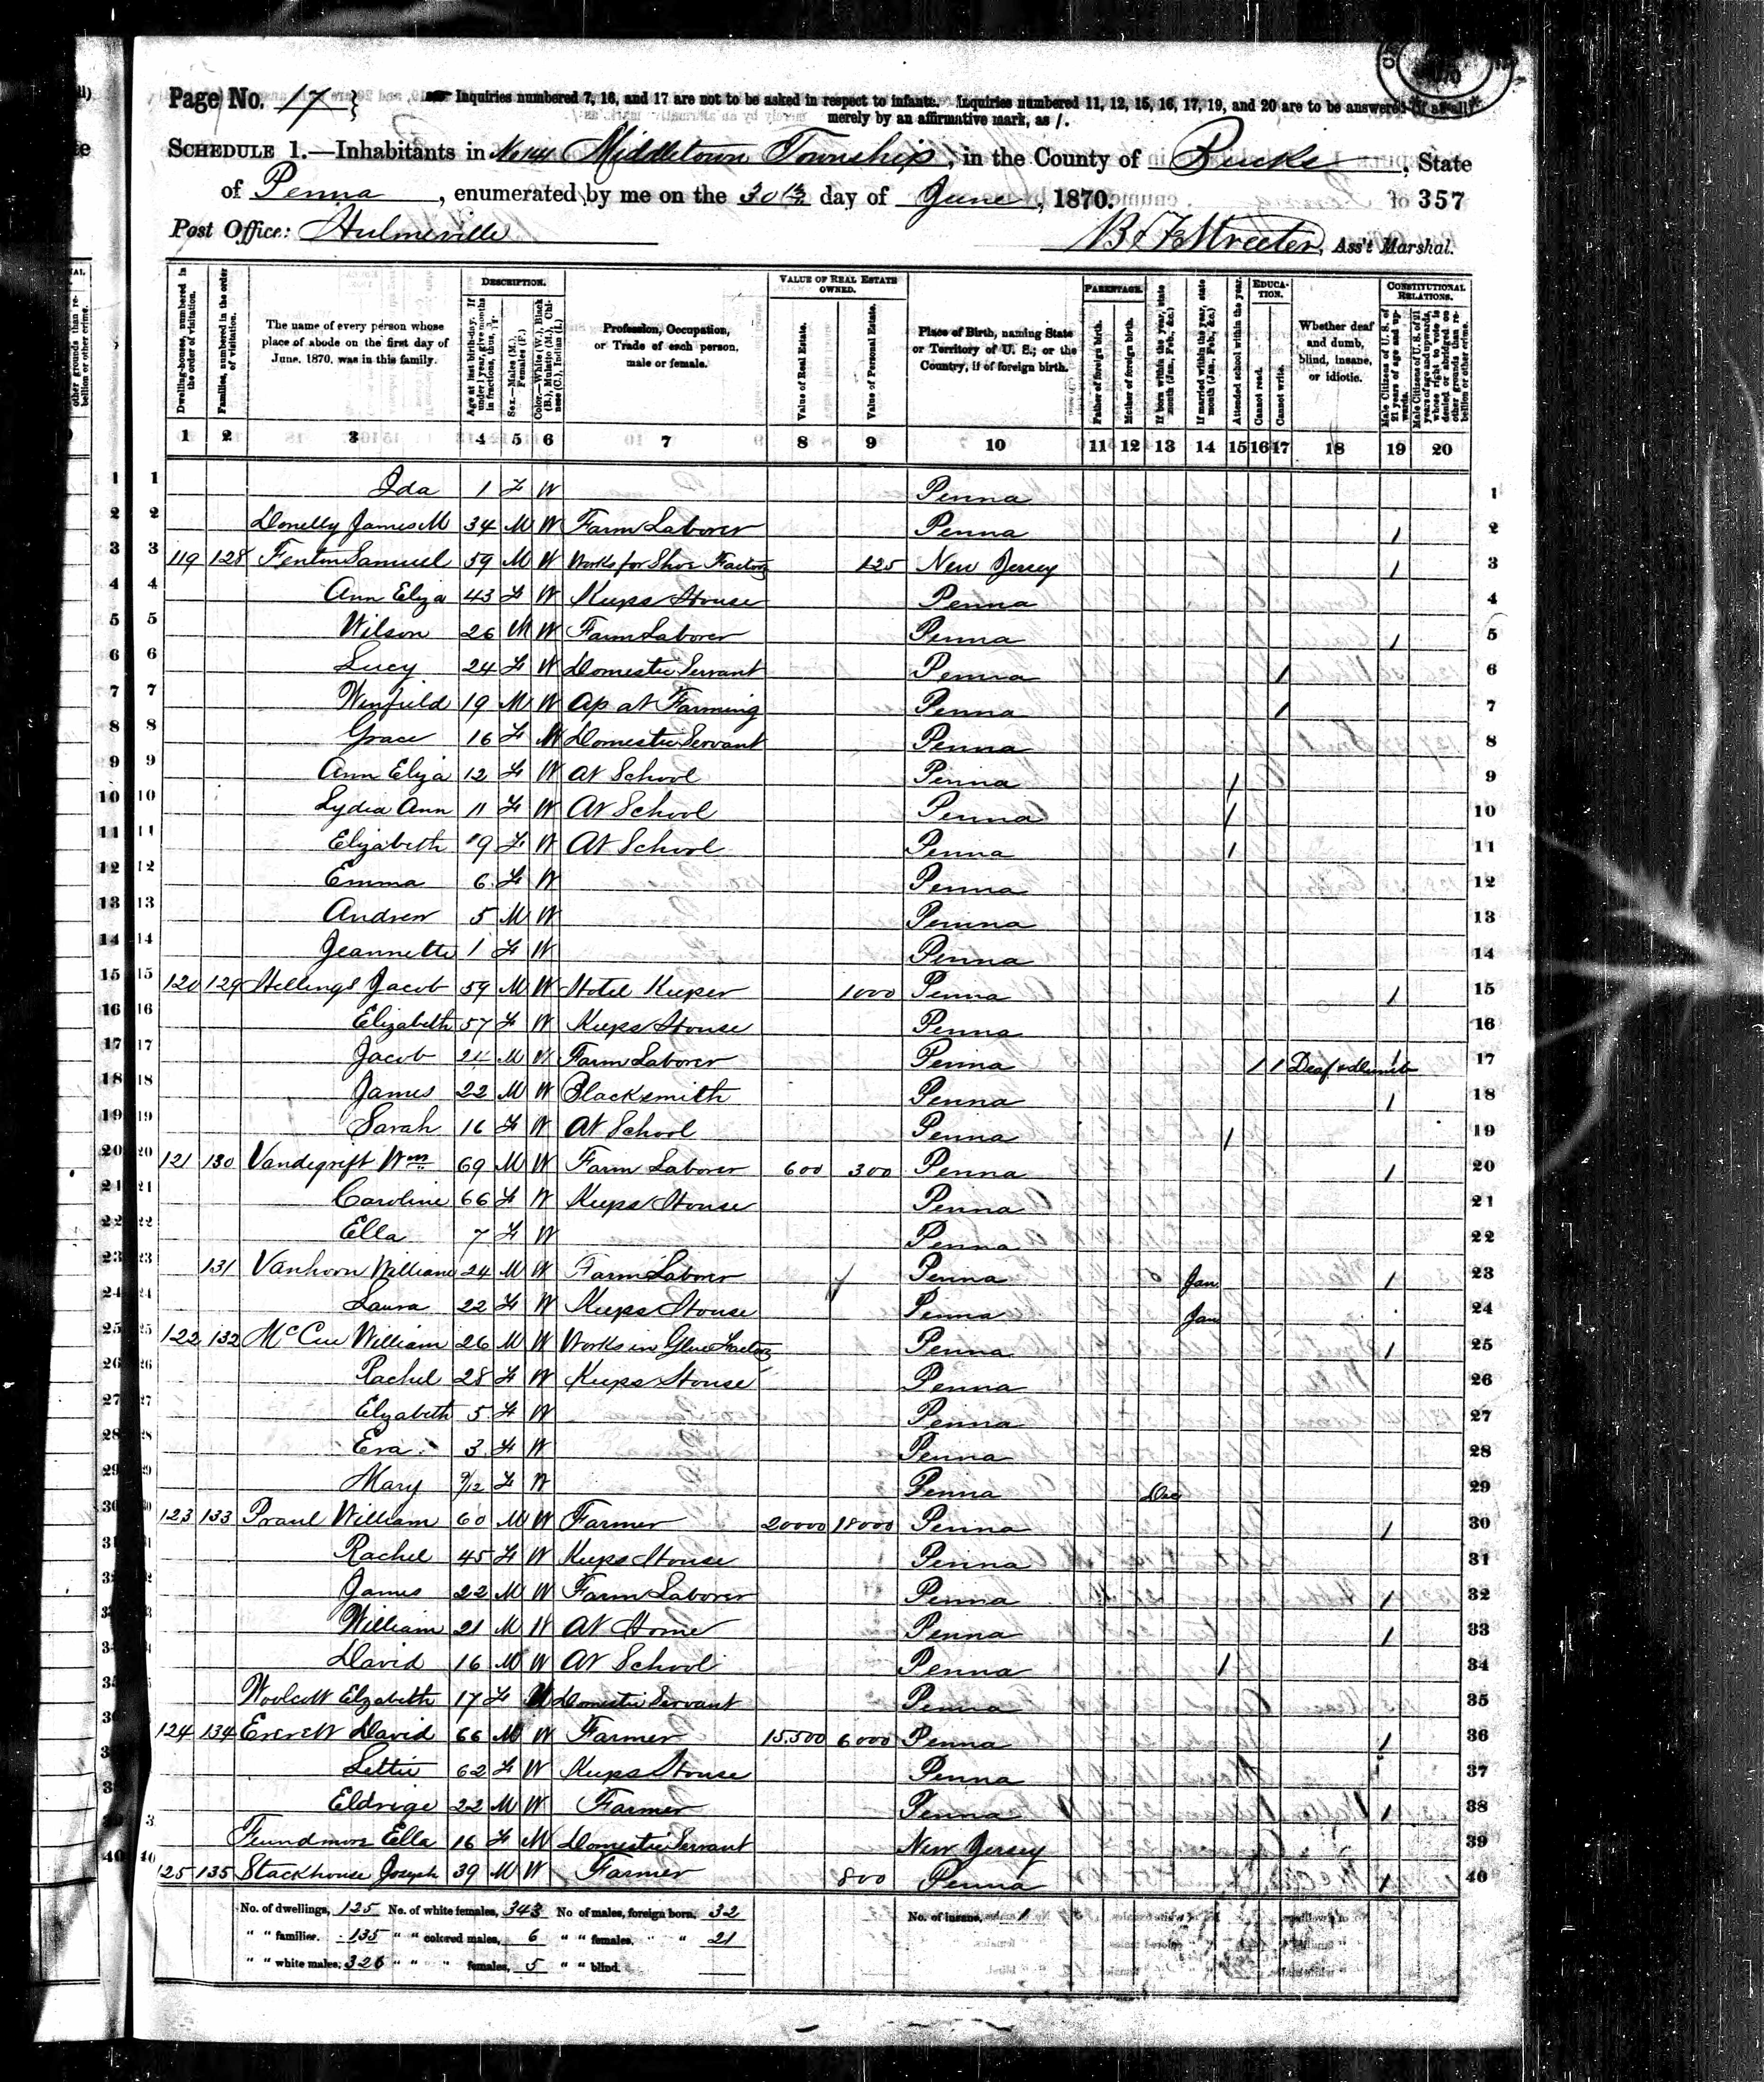 Page No. 17 } Inquiries numbered 7, 16, and 17 are not to be asked in respect to infants. Inquiries numbered 11, 12, 15, 16, 17, 19, and 20 are to be answered (if at all)
merely by an affirmative mark, as /.
SCHEDULE 1.—Inhabitants in Middletown Township, in the County of Bucks, State
of Penna, enumerated by me on the 30th day of June, 1870. 357
Post Office: Hulmeville B F Streeter, Ass't Marshal.
Dwelling-houses, numbered in the order of visitation.
Families, numbered in the order of visitation.
The name of every person whose place of abode on the first day of June, 1870, was in this family.
DESCRIPTION.
Age at last birth-day. If under 1 year, give months in fractions, thus, 3/12.
Sex.—Males (M.), Females (F.)
Color.—White (W.), Black (B.), Mulatto (M.), Chinese (C.), Indian (I.)
Profession, Occupation, or Trade of each person, male or female.
VALUE OF REAL ESTATE OWNED.
Value of Real Estate.
Value of Personal Estate.
Place of Birth, naming State or Territory of U. S.; or the Country, if of foreign birth.
PARENTAGE.
Father of foreign birth.
Mother of foreign birth.
If born within the year, state month (Jan., Feb., &c.)
If married within the year, state month (Jan., Feb., &c.)
Attended school within the year.
EDUCATION.
Cannot read.
Cannot write.
Whether deaf and dumb, blind, insane, or idiotic.
CONSTITUTIONAL RELATIONS.
Male Citizens of U. S. of 21 years of age and upwards.
Male Citizens of U. S. of 21 years of age and upwards, whose right to vote is denied or abridged on other grounds than rebellion or other crime.
1 2 3 4 5 6 7 8 9 10 11 12 13 14 15 16 17 18 19 20
1 Ida 1 F W Penna 1
2 Donelly James M 34 M W Farm Laborer Penna 1 2
3 119 128 Fenton Samuel 59 M W Works for Shoe Factory 125 New Jersey 1 3
4 Ann Eliza 43 F W Keeps House Penna 4
5 Wilson 26 M W Farm Laborer Penna 1 5
6 Lucy 24 F W Domestic Servant Penna 1 6
7 Winfield 19 M W Ap at Farming Penna 1 7
8 Grace 16 F W Domestic Servant Penna 8
9 Ann Eliza 12 F W At School Penna 1 9
10 Lydia Ann 11 F W At School Penna 1 10
11 Elizabeth 9 F W At School Penna 1 11
12 Emma 6 F W Penna 12
13 Andrew 5 M W Penna 13
14 Jeannette 1 F W Penna 14
15 120 129 Hellings Jacob 59 M W Hotel Keeper 1000 Penna 1 15
16 Elizabeth 57 F W Keeps House Penna 16
17 Jacob M W Farm Laborer Penna 1 1 Deaf & dumb 1 17
18 James 22 M W Blacksmith Penna 1 18
19 Sarah 16 F W At School Penna 1 19
20 121 130 Vandegrift Wm 69 M W Farm Laborer 600 300 Penna 1 20
21 Caroline 66 F W Keeps House Penna 21
22 Ella 7 F W Penna 22
23 131 Vanhorn William 24 M W Farm Laborer Penna Jan 1 23
24 Laura 22 F W Keeps House Penna Jan 24
25 122 132 McCue William 26 M W Works in Glue Factory Penna 1 25
26 Rachel 28 F W Keeps House Penna 26
27 Elizabeth 5 F W Penna 27
28 Eva 3 F W Penna 28
29 Mary 9/12 F W Penna Dec 29
30 123 133 Praul William 60 M W Farmer 20000 18000 Penna 1 30
31 Rachel 45 F W Keeps House Penna 31
32 James 22 M W Farm Laborer Penna 1 32
33 William 21 M W At Home Penna 1 33
34 David 16 M W At School Penna 1 34
35 Woolcott Elizabeth 17 F Domestic Servant Penna 35
36 124 134 Everett David 66 M W Farmer 15.500 6000 Penna 1 36
37 Lettie 62 F W Keeps House Penna 37
38 Eldrige 22 M W Farmer Penna 1 38
39 Ella 16 F M Domestic Servant New Jersey 39
40 125 135 Stackhouse Joseph 39 M W Farmer 800 Penna 1 40
No. of dwellings, 125 No. of white females, 343 No. of males, foreign born, 32 No. of insane, 1
" " families, 135 " " colored males, 6 " " females, " " 21
" " white males, 326 " " " females, 5 " " blind,